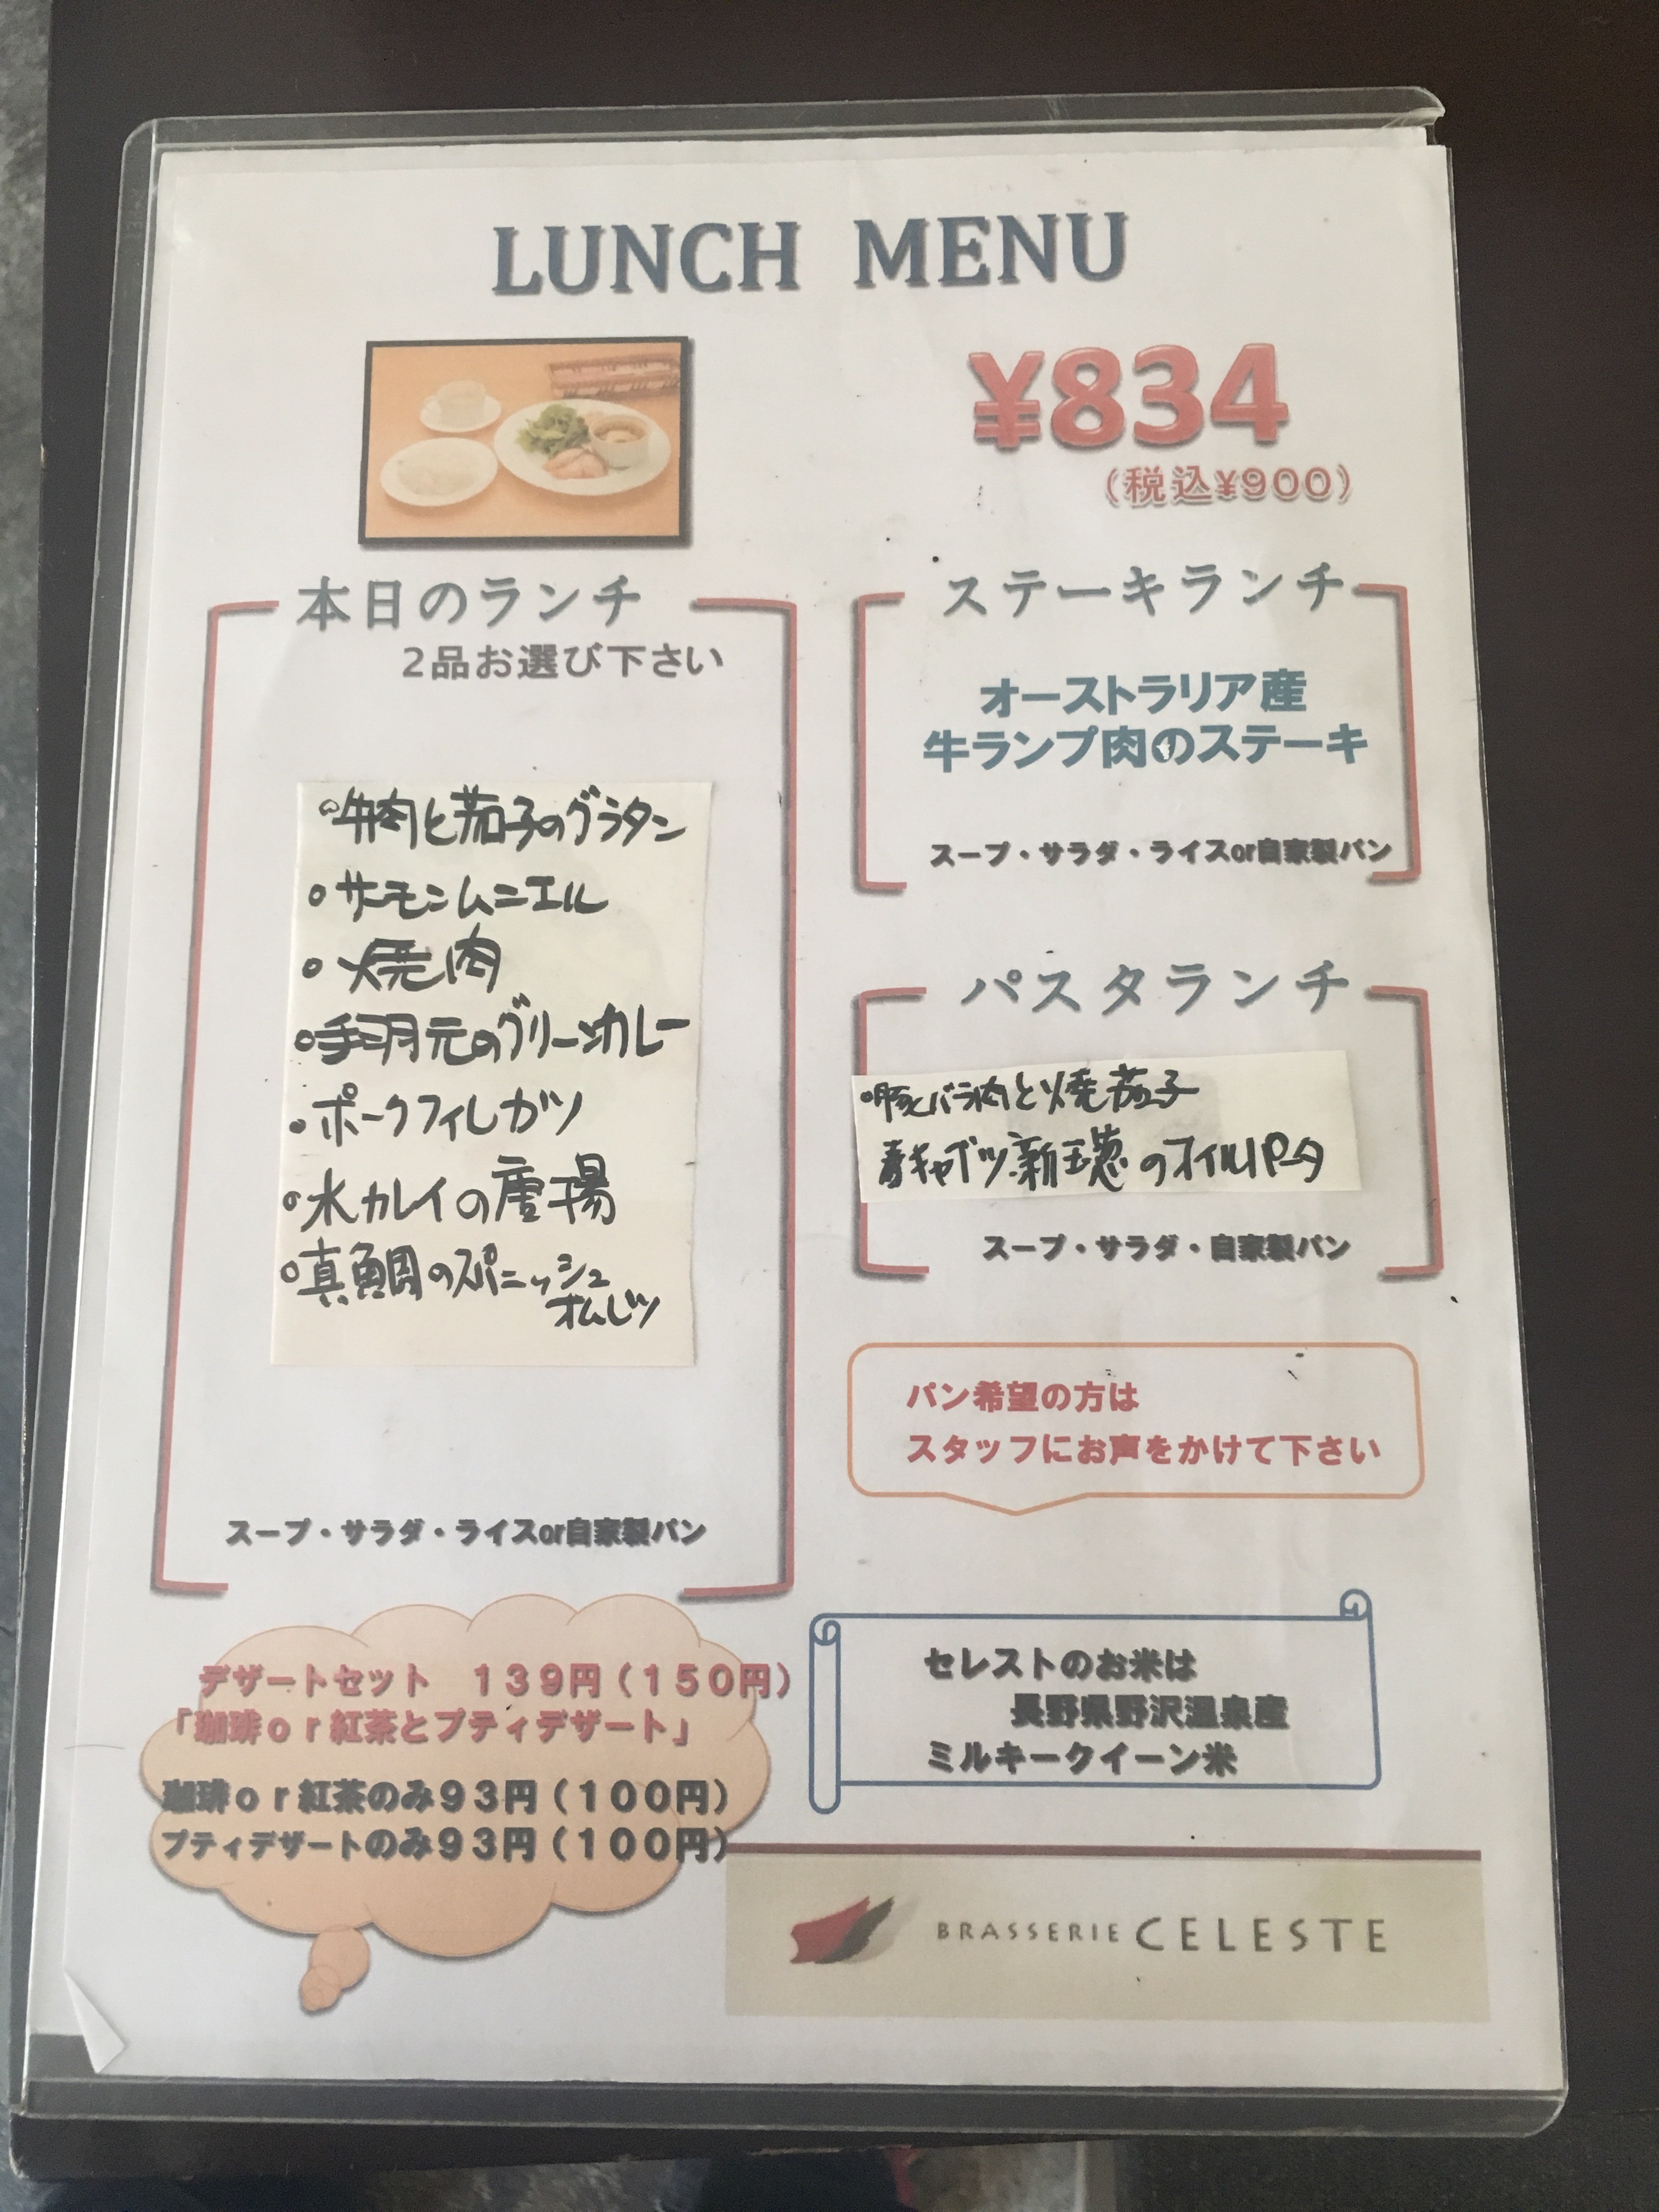 LUNCH MENU
¥834
(税込¥900)
本日のランチ
2品お選び下さい
牛肉と茄子のグラタン
サーモンムニエル
焼肉
手羽元のグリーンカレー
ポークフィレカツ
水カレイの唐揚
真鯛のスパニッシュ
オムレツ
スープ・サラダ・ライスor自家製パン
ステーキランチ
オーストラリア産
牛ランプ肉のステーキ
スープ・サラダ・ライスor自家製パン
パスタランチ
豚バラ肉と焼茄子
春キャベツ、新玉葱のオイルパスタ
スープ・サラダ・自家製パン
パン希望の方は
スタッフにお声をかけて下さい
デザートセット 139円(150円)
「珈琲or紅茶とプティデザート」
珈琲or紅茶のみ93円(100円)
プティデザートのみ93円(100円)
セレストのお米は
長野県野沢温泉産
ミルキークイーン米
BRASSERIE CELESTE